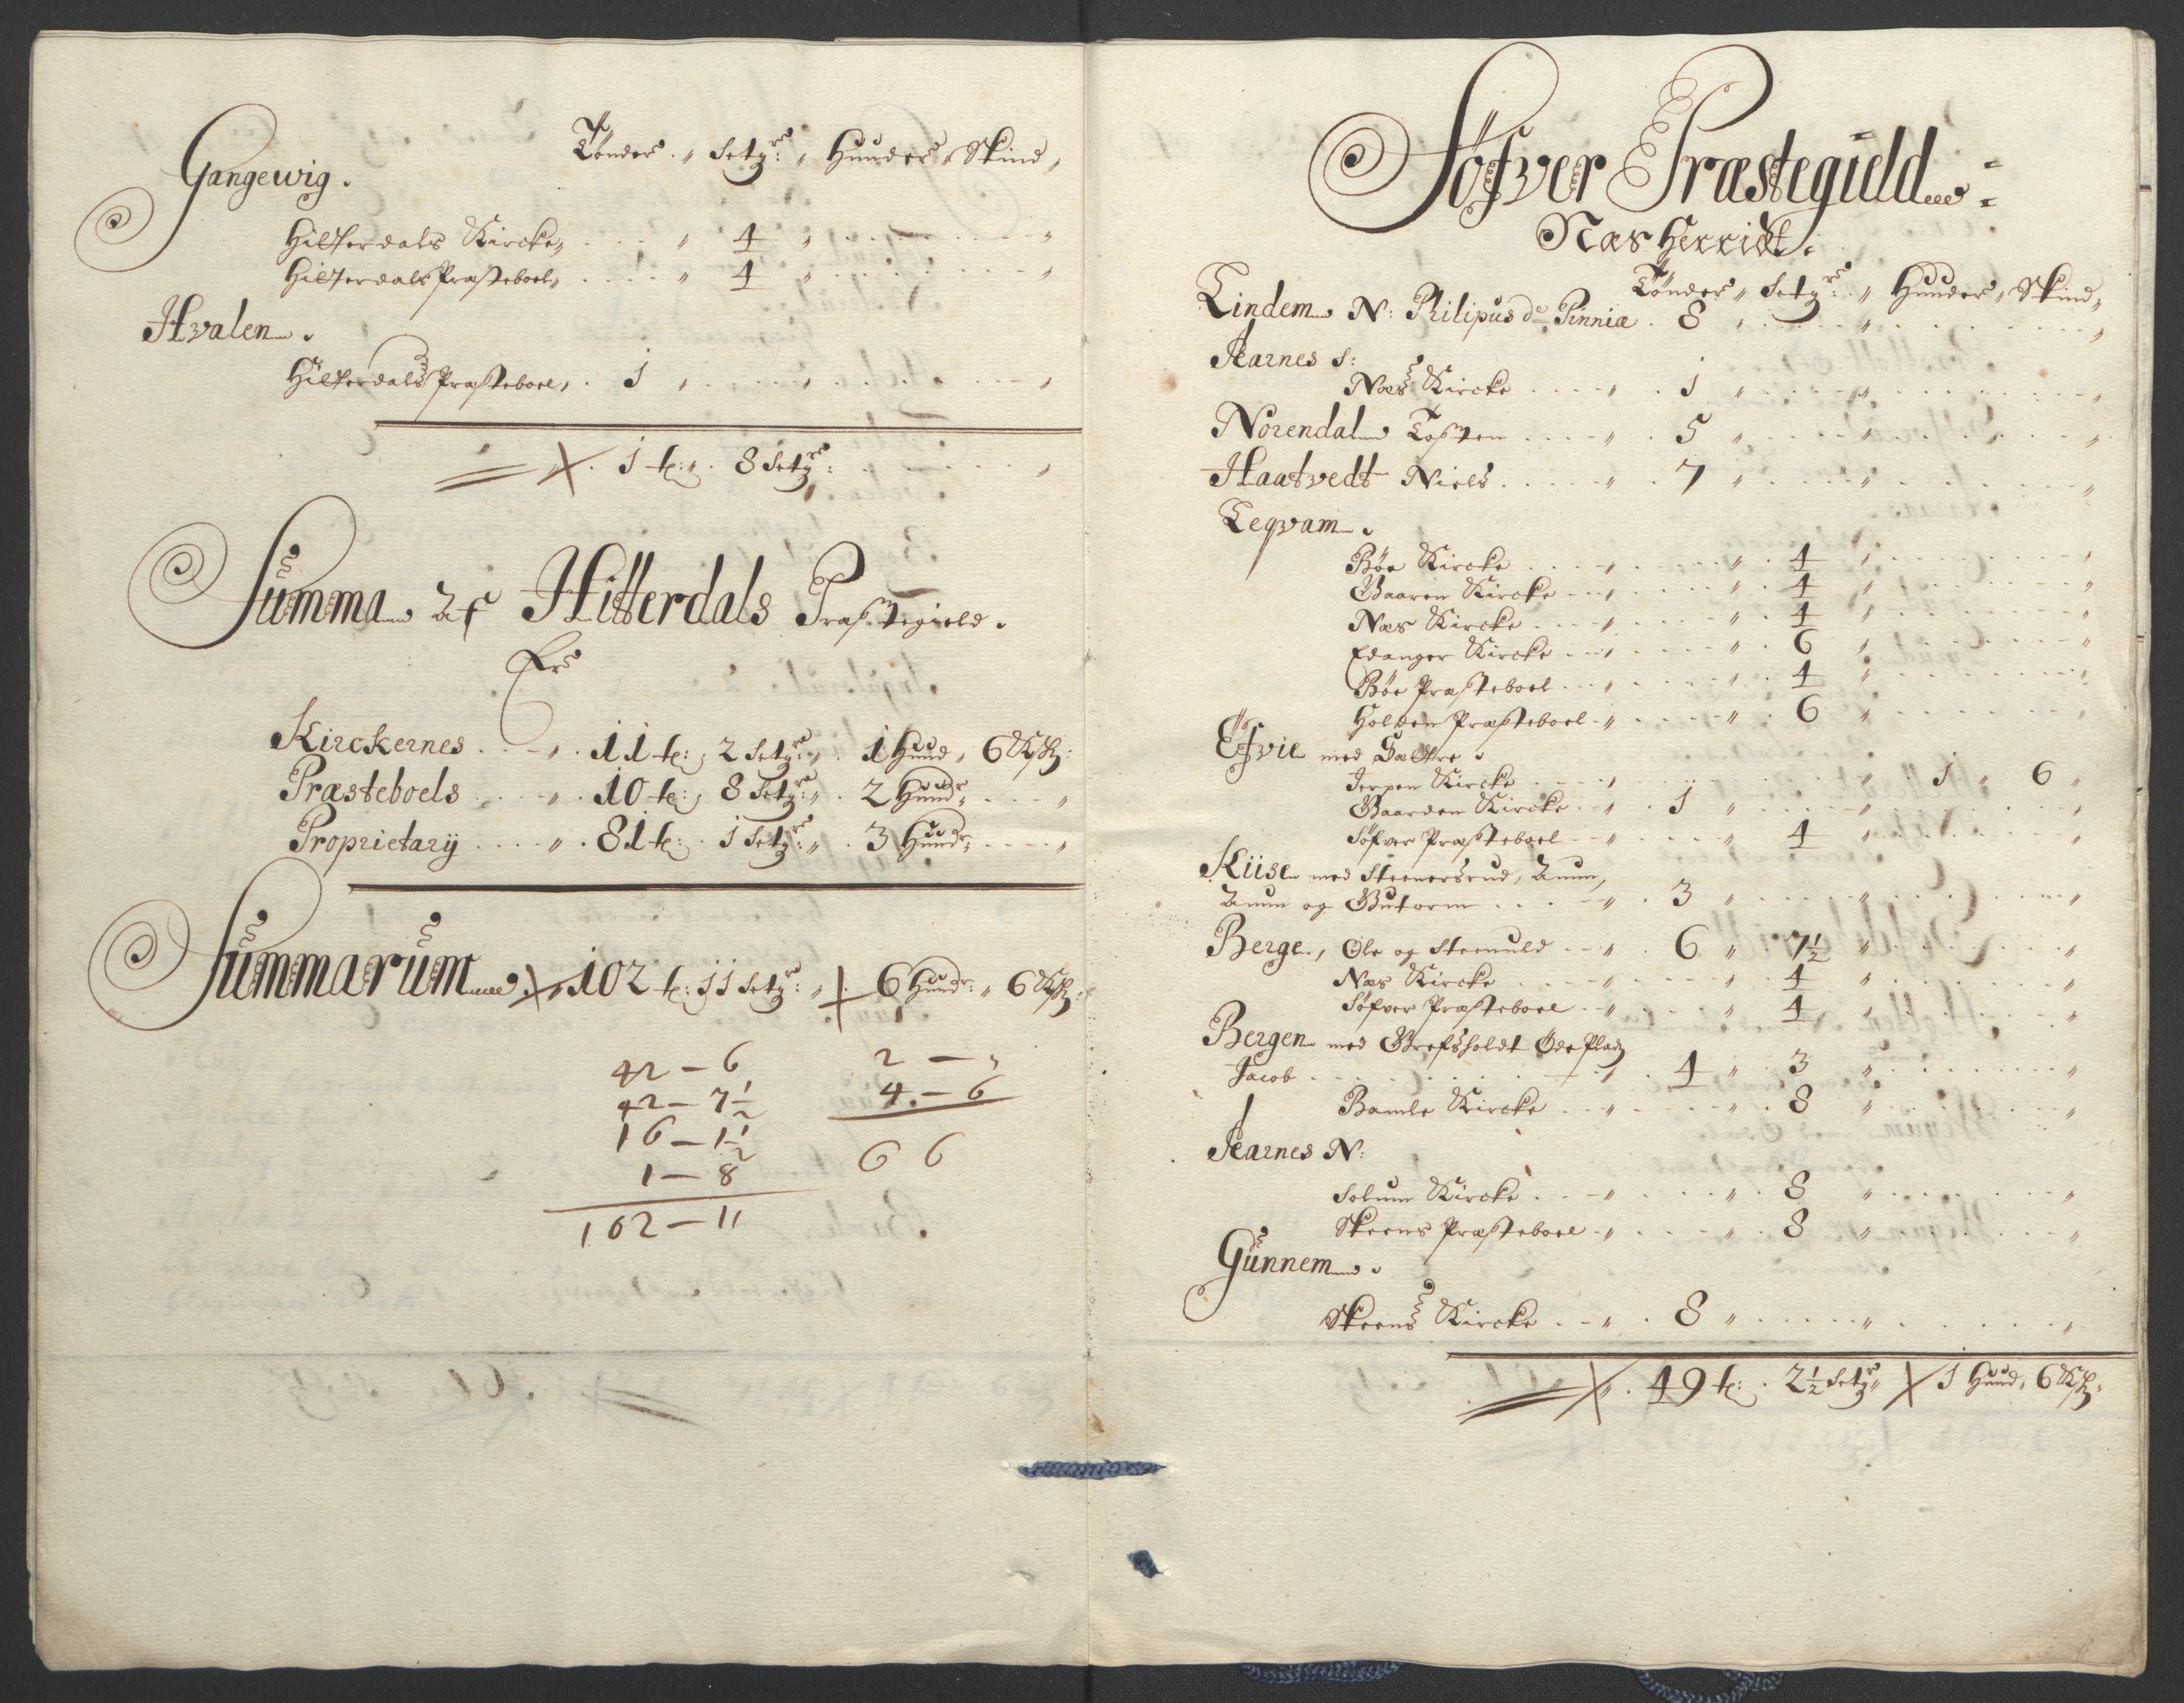 Tönder „ Setgr: „ Hunder „ Skind „
Gangewig .
Hitterdals Kircke „ 4 „
Hitterdals Præsteboel „ 4 „
Hvalen .
Hitterdals Præsteboel „ 1 „
1 t: „ 8 Setgr:
Summa Af Hitterdals Præstegield .
Er
Kirckernes „ 11 t: 2 Setgr: „ 1 Hund „ 6 Sk:
Præsteboels „ 10 t: 8 Setgr: „ 2 Hundr:
Proprietarij „ 81 t: 1 Setgr: „ 3 Hundr:
Summarum „ 102 t: 11 Setgr: „ 6 Hundr: „ 6 Sk:
42 — 6
42 — 7½
16 — 1½
1 — 8
102 — 11
2 — „
4 — 6
6 6
Söfver Præstegield
Næs Herridt .
Tönder „ Setgr: „ Hunder „ Skind „
Lindem N: Philipus de Pinnia . 8 „
Aarnes S:
Næs Kircke „ 1 „
Nörendal Tosten „ 5 „
Haatvedt Niels „ 7 „
Leqvam .
Böe Kircke „ 4 „
Gaaren Kircke „ 4 „
Næs Kircke „ 4 „
Edanger Kircke „ 6 „
Böe Præsteboel „ 4 „
Holden Præsteboel „ 6 „
Efvie med Sættre .
Jerpen Kircke „ 1 „ 6 „
Gaarden Kircke „ 1 „
Söfver Præsteboel „ 4 „
Kiise med Steenersrud, Aun,
Aun og Gutorm „ 3 „
Berge, Ole og Steenuld „ 6 „ 7½ „
Næs Kircke „ 4 „
Söfver Præsteboel „ 4 „
Bergen med Grefsholdt Öde Plads
Jacob „ 4 „ 3 „
Bamle Kircke „ 8 „
Aarnes N:
Solum Kircke „ 8 „
Skeens Præsteboel „ 8 „
Gunnem .
Skeens Kircke „ 8 „
„ 49 t: 2½ Setgr: „ 1 Hund, 6 Sk: